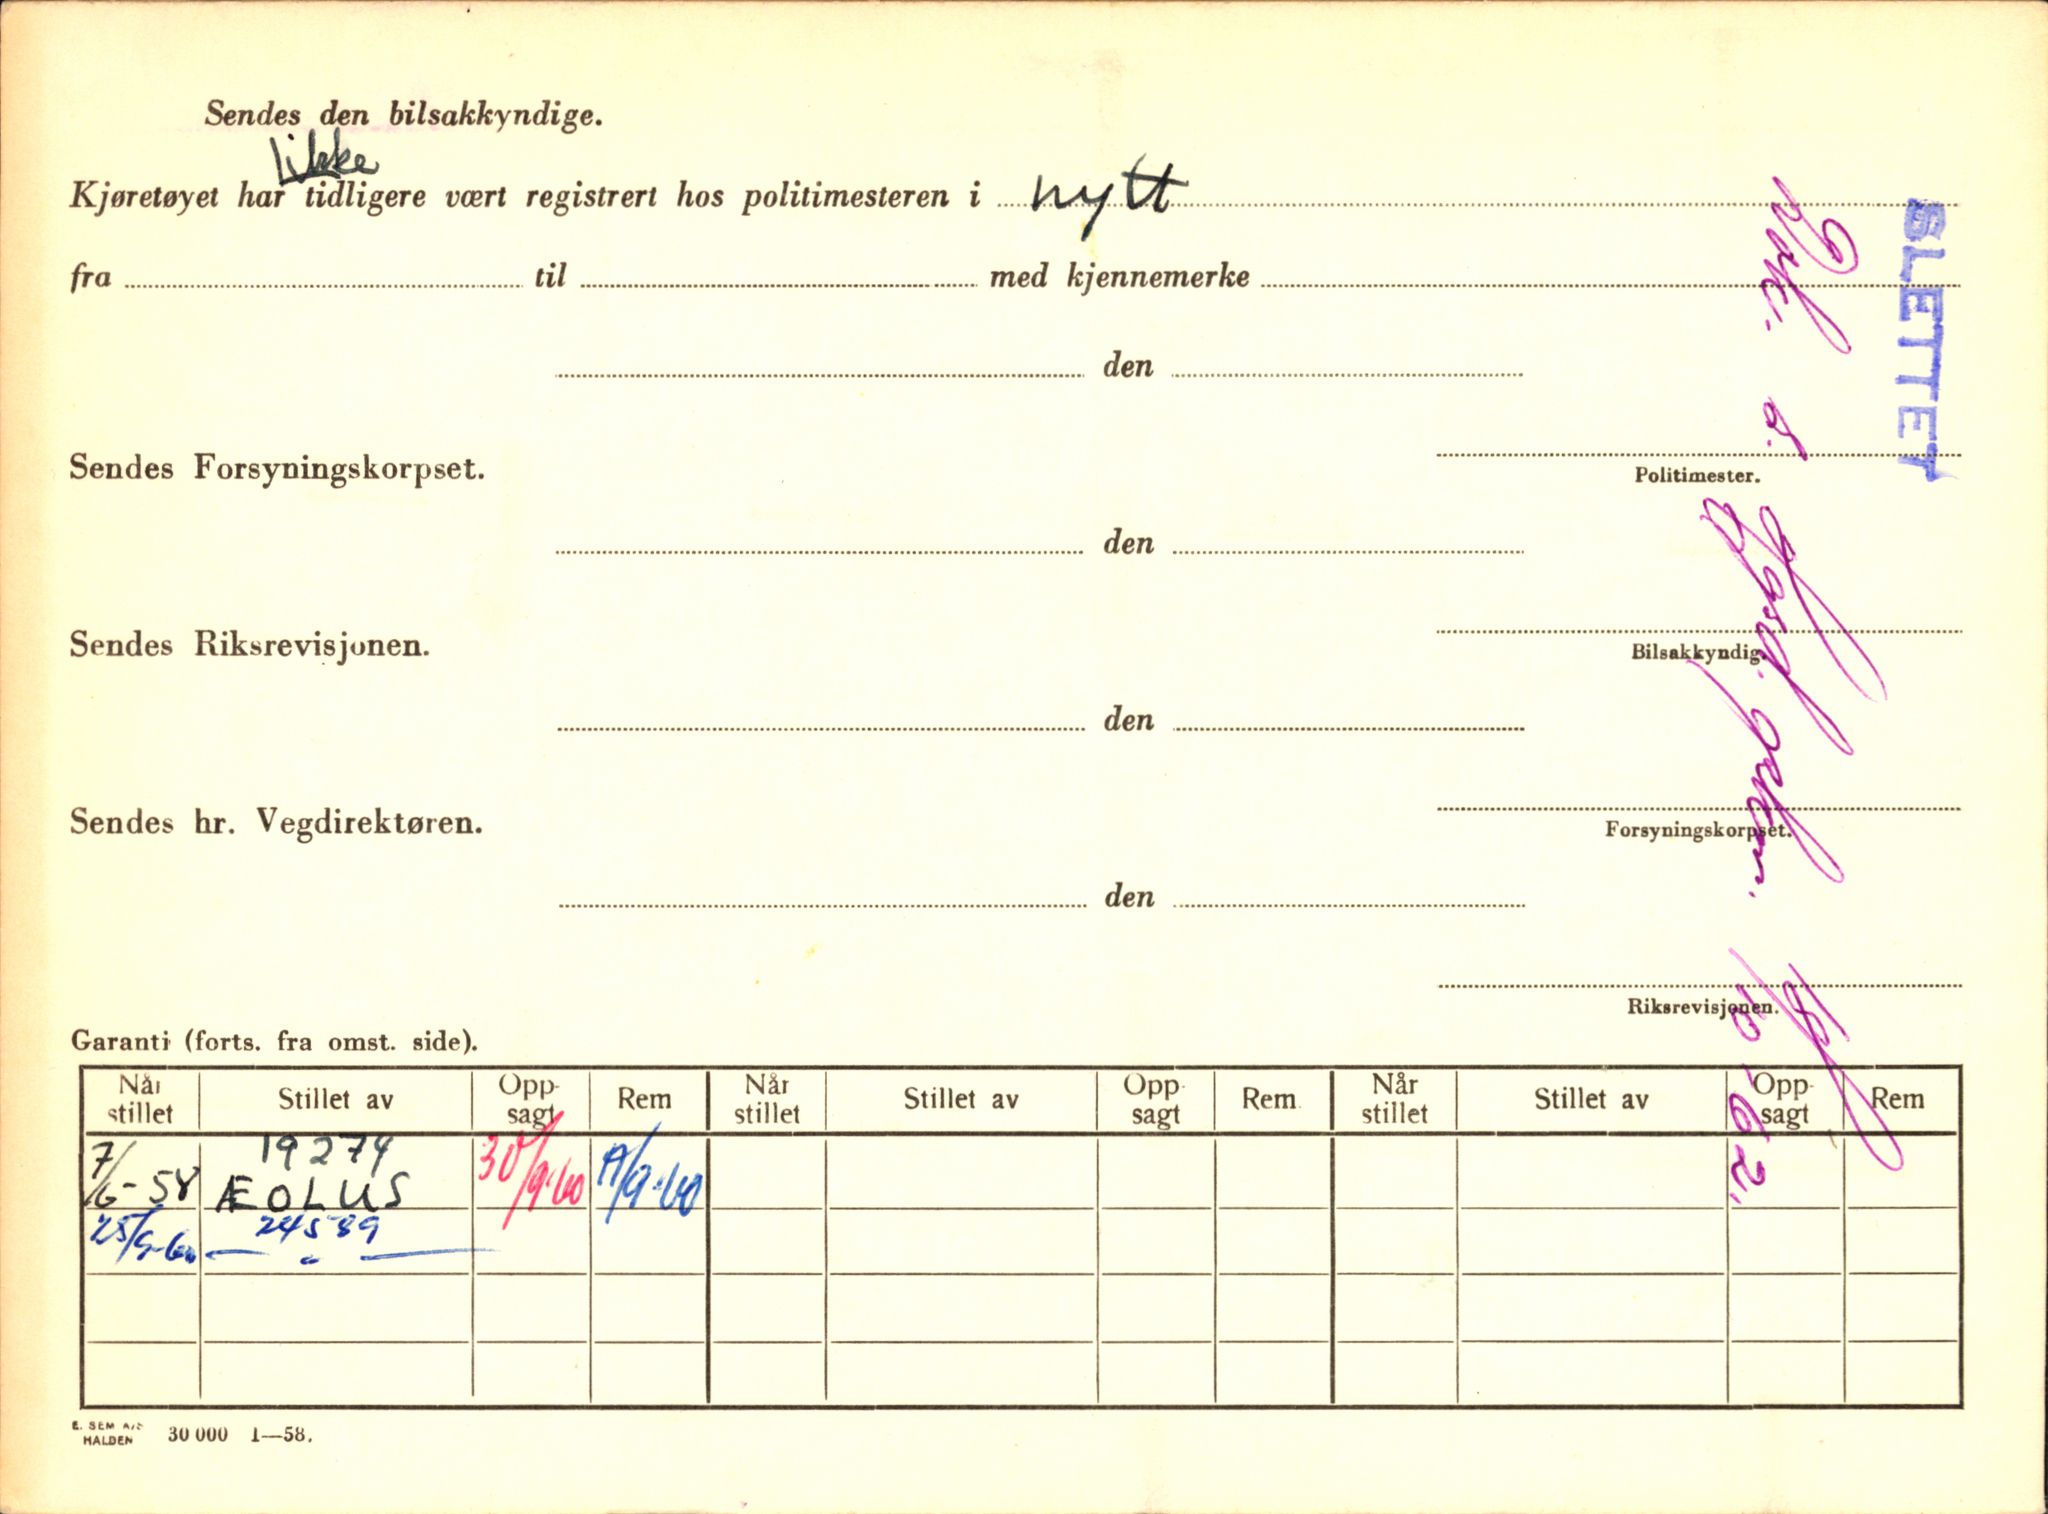 Sendes den bilsakkyndige.
ikke
Kjøretøyet har tidligere vært registrert hos politimesteren i nytt
fra til med kjennemerke
den
Politimester.
Sendes Forsyningskorpset.
den
Bilsakkyndig.
Sendes Riksrevisjonen.
den
Forsyningskorpset.
Sendes hr. Vegdirektøren.
den
Riksrevisjonen.
SLETTET
10-62.
Garanti (forts. fra omst. side).
Når stillet Stillet av Opp-sagt Rem Når stillet Stillet av Opp-sagt Rem Når stillet Stillet av Opp-sagt Rem
19274
7/6-58 ÆOLUS 30/9-60 /9-60
24589
25/9-60 — " —
E. SEM A/S
HALDEN 30 000 1—58.